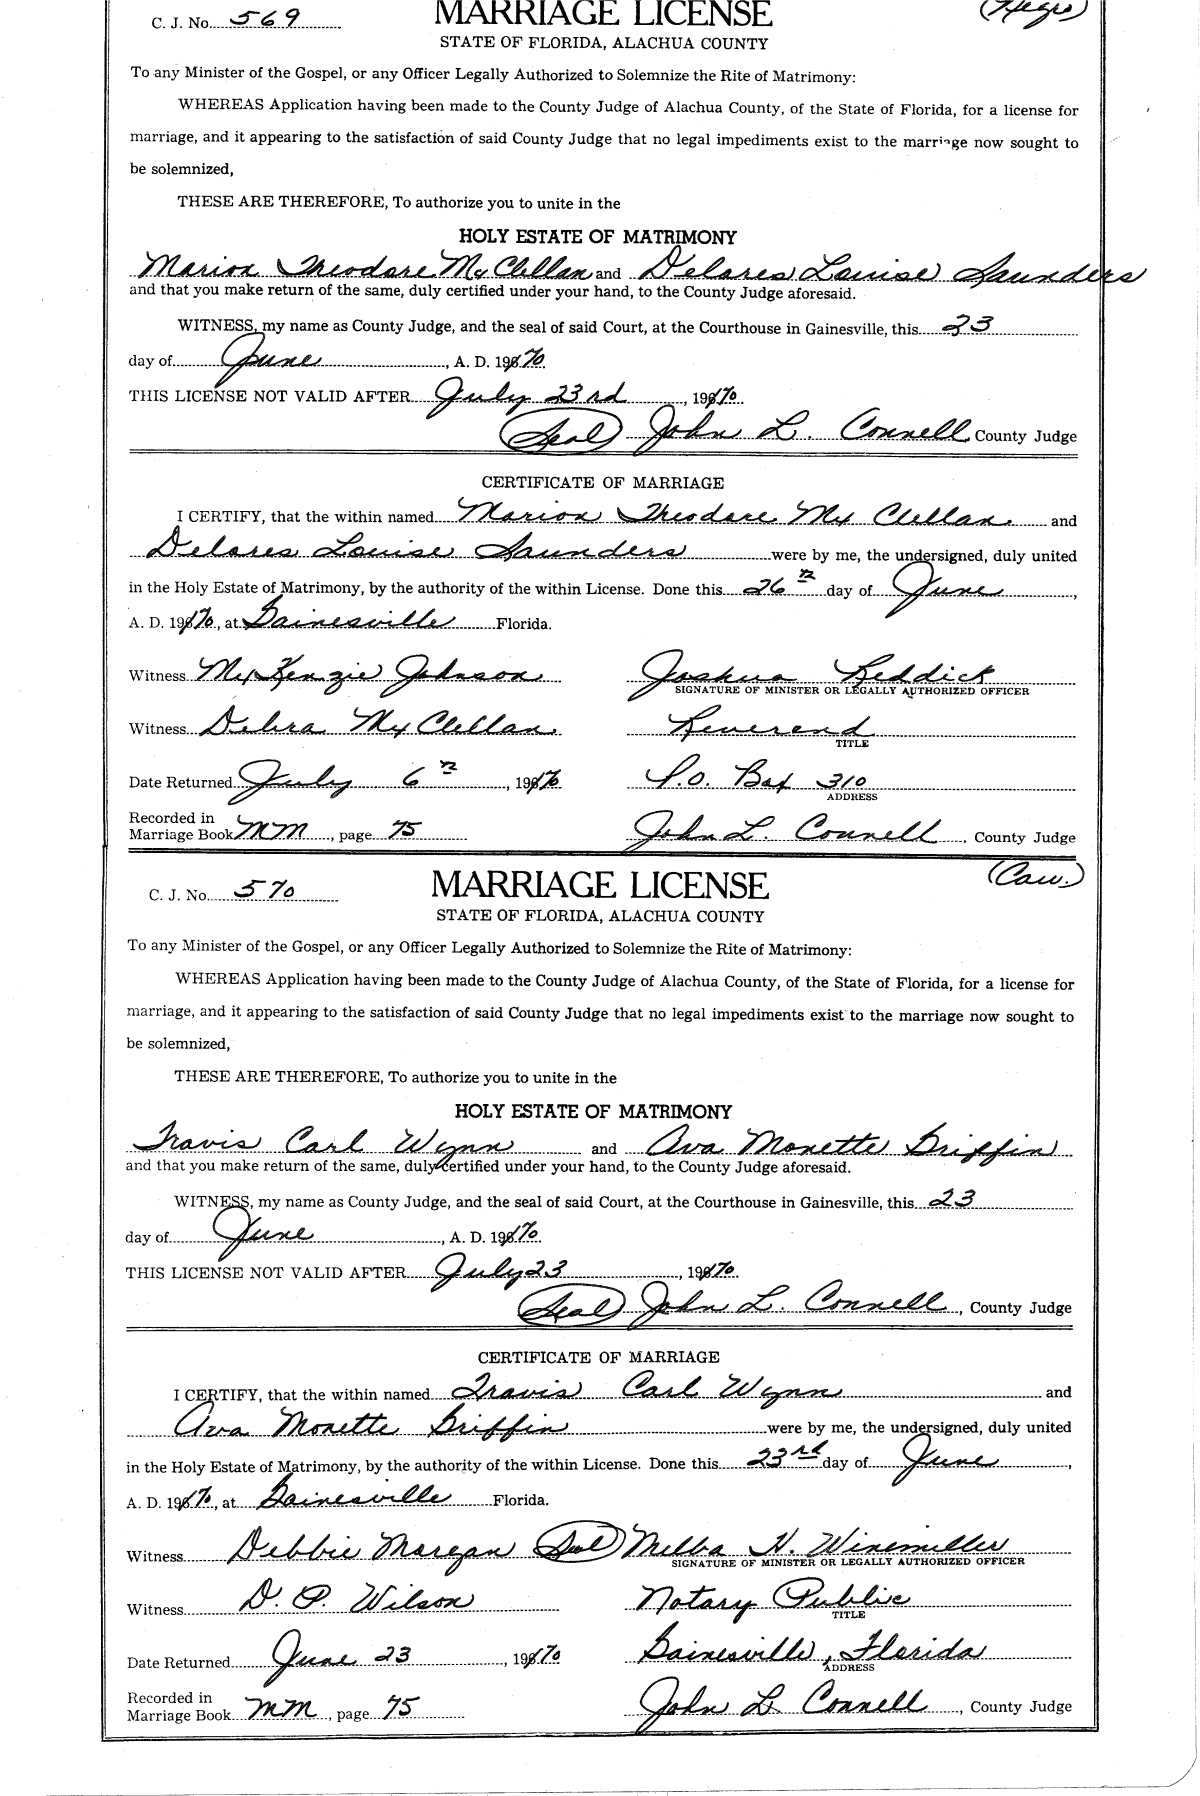 C. J. No. 569 MARRIAGE LICENSE (Negro)
STATE OF FLORIDA, ALACHUA COUNTY
To any Minister of the Gospel, or any Officer Legally Authorized to Solemnize the Rite of Matrimony:
WHEREAS Application having been made to the County Judge of Alachua County, of the State of Florida, for a license for
marriage, and it appearing to the satisfaction of said County Judge that no legal impediments exist to the marriage now sought to
be solemnized,
THESE ARE THEREFORE, To authorize you to unite in the
HOLY ESTATE OF MATRIMONY
Marion Theodore McClellan and Delares Louise Saunders
and that you make return of the same, duly certified under your hand, to the County Judge aforesaid.
WITNESS, my name as County Judge, and the seal of said Court, at the Courthouse in Gainesville, this 23
day of June, A. D. 1970
THIS LICENSE NOT VALID AFTER July 23rd, 1970
(Seal) John L. Connell County Judge
CERTIFICATE OF MARRIAGE
I CERTIFY, that the within named Marion Theodore Mc Clellan and
Delares Louise Saunders were by me, the undersigned, duly united
in the Holy Estate of Matrimony, by the authority of the within License. Done this 26th day of June,
A. D. 1970, at Gainesville Florida.
Witness McKenzie Johnson Joshua Reddick
SIGNATURE OF MINISTER OR LEGALLY AUTHORIZED OFFICER
Witness Debra McClellan Reverend
TITLE
Date Returned July 6th, 1970 P.O. Box 310
ADDRESS
Recorded in
Marriage Book MM, page 75 John L. Connell, County Judge
C. J. No. 570 MARRIAGE LICENSE (Cau.)
STATE OF FLORIDA, ALACHUA COUNTY
To any Minister of the Gospel, or any Officer Legally Authorized to Solemnize the Rite of Matrimony:
WHEREAS Application having been made to the County Judge of Alachua County, of the State of Florida, for a license for
marriage, and it appearing to the satisfaction of said County Judge that no legal impediments exist to the marriage now sought to
be solemnized,
THESE ARE THEREFORE, To authorize you to unite in the
HOLY ESTATE OF MATRIMONY
Travis Carl Wynn and Ava Monette Griffin
and that you make return of the same, duly certified under your hand, to the County Judge aforesaid.
WITNESS, my name as County Judge, and the seal of said Court, at the Courthouse in Gainesville, this 23
day of June, A. D. 1970
THIS LICENSE NOT VALID AFTER July 23, 1970
(Seal) John L. Connell, County Judge
CERTIFICATE OF MARRIAGE
I CERTIFY, that the within named Travis Carl Wynn and
Ava Monette Griffin were by me, the undersigned, duly united
in the Holy Estate of Matrimony, by the authority of the within License. Done this 23rd day of June,
A. D. 1970, at Gainesville Florida.
Witness Debbie Morgan (Seal) Melba H. Winemiller
SIGNATURE OF MINISTER OR LEGALLY AUTHORIZED OFFICER
Witness D. P. Wilson Notary Public
TITLE
Date Returned June 23, 1970 Gainesville, Florida
ADDRESS
Recorded in
Marriage Book MM, page 75 John L. Connell, County Judge